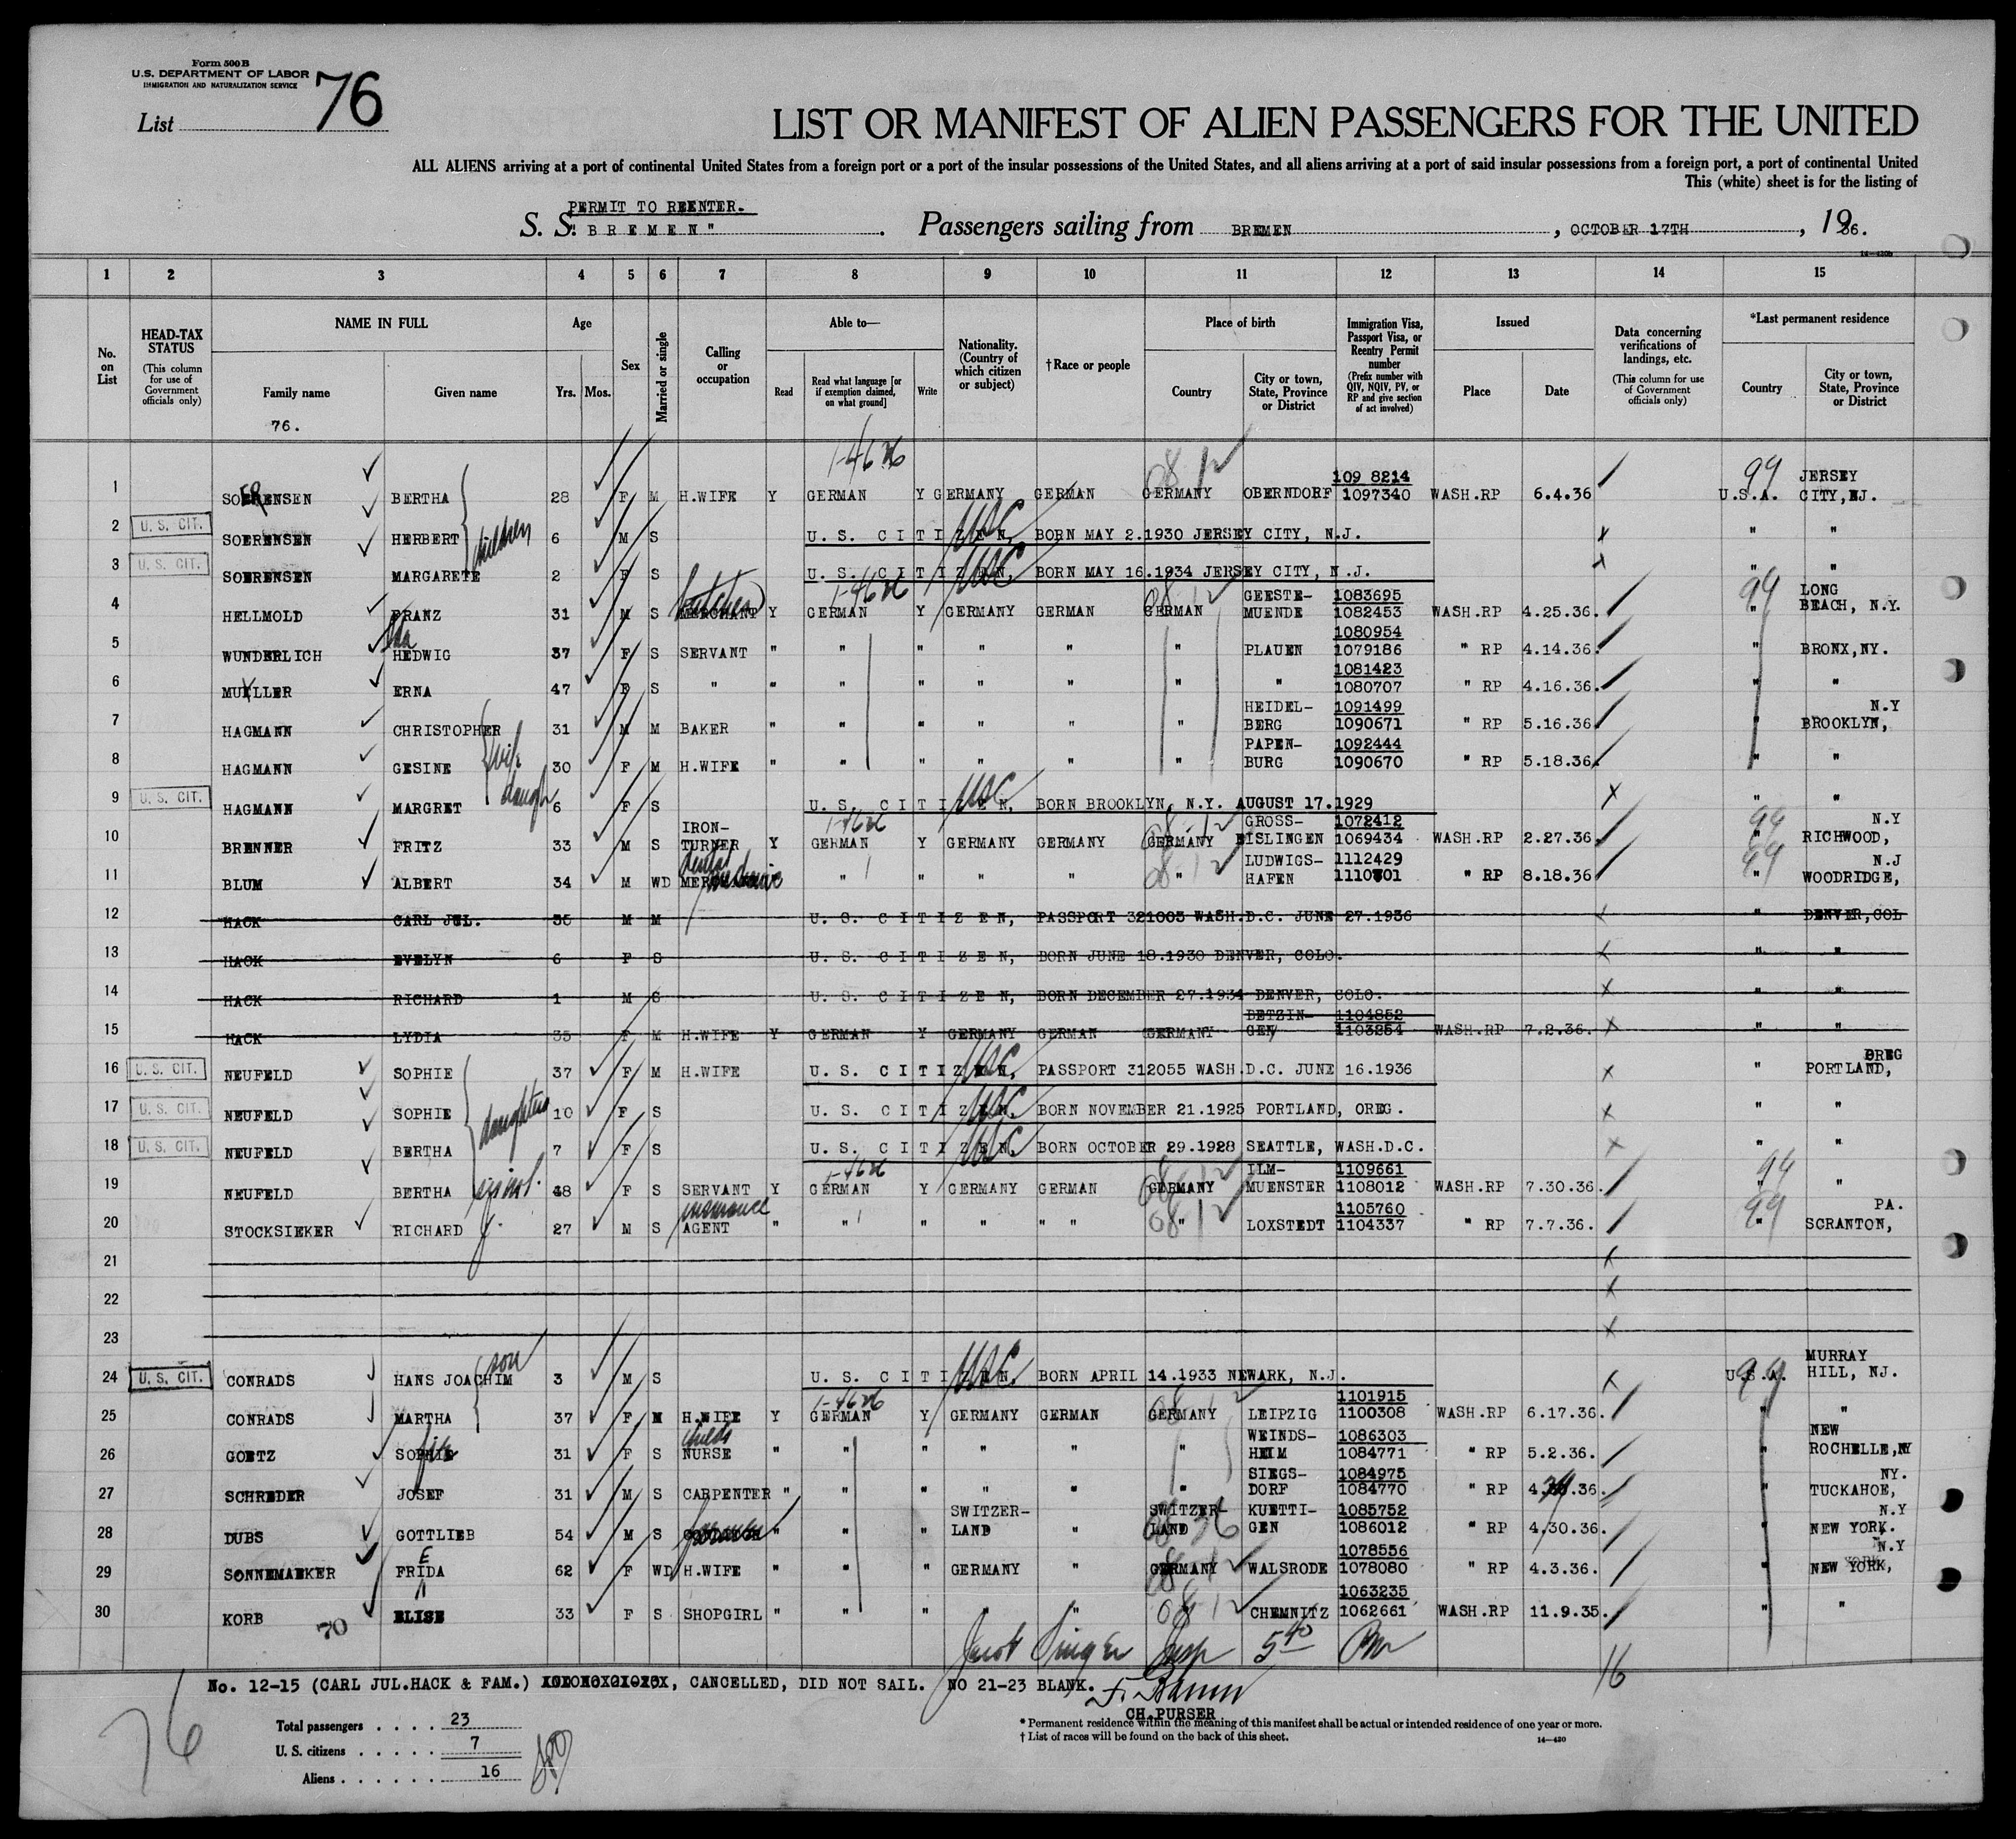 Form 500 B
U.S. DEPARTMENT OF LABOR
IMMIGRATION AND NATURALIZATION SERVICE
List 76
LIST OR MANIFEST OF ALIEN PASSENGERS FOR THE UNITED
ALL ALIENS arriving at a port of continental United States from a foreign port or a port of the insular possessions of the United States, and all aliens arriving at a port of said insular possessions from a foreign port, a port of continental United
This (white) sheet is for the listing of
PERMIT TO REENTER.
S. S. "BREMEN" . Passengers sailing from BREMEN , OCTOBER 17TH , 1936.
14—420b
1 2 3 4 5 6 7 8 9 10 11 12 13 14 15
No. on List
HEAD-TAX STATUS (This column for use of Government officials only)
NAME IN FULL
Family name
Given name
76.
Age
Yrs. Mos.
Sex
Married or single
Calling or occupation
Able to—
Read
Read what language [or if exemption claimed, on what ground]
Write
Nationality. (Country of which citizen or subject)
†Race or people
Place of birth
Country
City or town, State, Province or District
Immigration Visa, Passport Visa, or Reentry Permit number (Prefix number with QIV, NQIV, PV, or RP and give section of act involved)
Issued
Place
Date
Data concerning verifications of landings, etc. (This column for use of Government officials only)
*Last permanent residence
Country
City or town, State, Province or District
1 SOERENSEN BERTHA 28 F M H.WIFE Y GERMAN Y GERMANY GERMAN GERMANY OBERNDORF 109 8214 1097340 WASH.RP 6.4.36 99 U.S.A. JERSEY CITY, NJ.
2 U. S. CIT. SOERENSEN HERBERT children 6 M S U. S. CITIZEN, USC BORN MAY 2.1930 JERSEY CITY, N.J. " "
3 U. S. CIT. SOERENSEN MARGARETE 2 F S U. S. CITIZEN, USC BORN MAY 16.1934 JERSEY CITY, N.J. " "
4 HELLMOLD FRANZ 31 M S MERCHANT butcher Y GERMAN Y GERMANY GERMAN GERMAN GEESTE-MUENDE 1083695 1082453 WASH.RP 4.25.36. 99 " LONG BEACH, N.Y.
5 WUNDERLICH HEDWIG Ida 37 F S SERVANT " " " " " " PLAUEN 1080954 1079186 " RP 4.14.36. " BRONX,NY.
6 MUELLER ERNA 47 F S " " " " " " " " 1081423 1080707 " RP 4.16.36. " "
7 HAGMANN CHRISTOPHER 31 M M BAKER " " " " " " HEIDEL-BERG 1091499 1090671 " RP 5.16.36. " N.Y BROOKLYN,
8 HAGMANN GESINE wife 30 F M H.WIFE " " " " " " PAPEN-BURG 1092444 1090670 " RP 5.18.36. " "
9 U. S. CIT. HAGMANN MARGRET daugh 6 F S U. S. CITIZEN, USC BORN BROOKLYN, N.Y. AUGUST 17.1929 " "
10 BRENNER FRITZ 33 M S IRON-TURNER Y GERMAN Y GERMANY GERMANY GERMANY GROSS-EISLINGEN 1072412 1069434 WASH.RP 2.27.36. 99 " N.Y RICHWOOD,
11 BLUM ALBERT 34 M WD dental " " " " " LUDWIGS-HAFEN 1112429 1110801 " RP 8.18.36 99 " N.J WOODRIDGE,
12 HACK CARL JUL. 35 M M U. S. CITIZEN, PASSPORT 321005 WASH.D.C. JUNE 27.1936 " DENVER,COL
13 HACK EVELYN 6 F S U. S. CITIZEN, BORN JUNE 18.1930 DENVER, COLO. " "
14 HACK RICHARD 1 M S U. S. CITIZEN, BORN DECEMBER 27.1934 DENVER, COLO. " "
15 HACK LYDIA 35 F M H.WIFE Y GERMAN Y GERMANY GERMAN GERMANY BETZIN-GEN 1104852 1103254 WASH.RP 7.2.36. " "
16 U. S. CIT. NEUFELD SOPHIE 37 F M H.WIFE U. S. CITIZEN, USC PASSPORT 312055 WASH.D.C. JUNE 16.1936 " OREG PORTLAND,
17 U. S. CIT. NEUFELD SOPHIE daughters 10 F S U. S. CITIZEN, USC BORN NOVEMBER 21.1925 PORTLAND, OREG. " "
18 U. S. CIT. NEUFELD BERTHA 7 F S U. S. CITIZEN, USC BORN OCTOBER 29.1928 SEATTLE, WASH.D.C. " "
19 NEUFELD BERTHA 48 F S SERVANT Y GERMAN Y GERMANY GERMAN GERMANY ILM-MUENSTER 1109661 1108012 WASH.RP 7.30.36. 99 " "
20 STOCKSIEKER RICHARD J. 27 M S insurance AGENT " " " " " " " LOXSTEDT 1105760 1104337 " RP 7.7.36. 99 " PA. SCRANTON,
21
22
23
24 U. S. CIT. CONRADS HANS JOACHIM son 3 M S U. S. CITIZEN, USC BORN APRIL 14.1933 NEWARK, N.J. U.S.A. 99 MURRAY HILL, NJ.
25 CONRADS MARTHA 37 F M H.WIFE Y GERMAN Y GERMANY GERMAN GERMANY LEIPZIG 1101915 1100308 WASH.RP 6.17.36. " "
26 GOETZ SOPHIE 31 F S childs NURSE " " " " " " WEINDS-HEIM 1086303 1084771 " RP 5.2.36. " NEW ROCHELLE,NY
27 SCHREDER JOSEF 31 M S CARPENTER " " " " " " SIEGS-DORF 1084975 1084770 " RP .36. " NY. TUCKAHOE,
28 DUBS GOTTLIEB 54 M S " " " SWITZER-LAND " SWITZER-LAND KUETTI-GEN 1085752 1086012 " RP 4.30.36. " N.Y NEW YORK.
29 SONNEMAEKER FRIDA E 62 F WD H.WIFE " " " GERMANY " GERMANY WALSRODE 1078556 1078080 " RP 4.3.36. " N.Y NEW YORK,
30 KORB ELISE 33 F S SHOPGIRL " " " " " " CHEMNITZ 1063235 1062661 WASH.RP 11.9.35. " "
70
Jacob Singer Insp 5 40 Pm
16
No. 12-15 (CARL JUL.HACK & FAM.) , CANCELLED, DID NOT SAIL. NO 21-23 BLANK.
CH.PURSER
76
Total passengers . . . . 23
U. S. citizens . . . . . 7
Aliens . . . . . . 16
* Permanent residence within the meaning of this manifest shall be actual or intended residence of one year or more.
† List of races will be found on the back of this sheet.
14—420